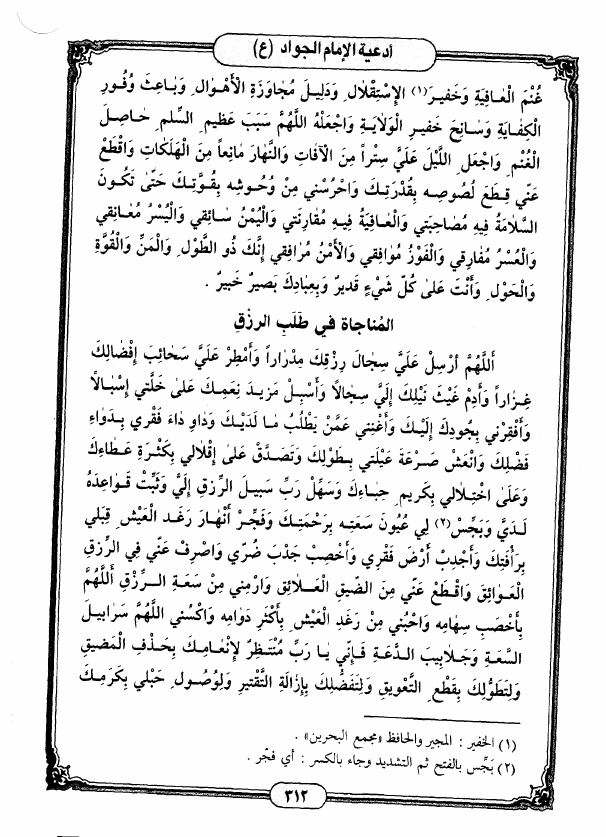 أدعية الإمام الجواد (ع)
غُنْمَ الْعَافِيَةِ وَخَفِيرَ(١) الإِسْتِقْلَالِ وَدَلِيلَ مُجَاوَزَةِ الْأَهْوَالِ وَبَاعِثَ وُفُورِ
الْكِفَايَةِ وَسَانِحَ خَفِيرِ الْوِلَايَةِ وَاجْعَلْهُ اللَّهُمَّ سَبَبَ عَظِيمِ السِّلْمِ حَاصِلَ
الْغُنْمِ وَاجْعَلِ اللَّيْلَ عَلَيَّ سِتْراً مِنَ الْآفَاتِ وَالنَّهَارَ مَانِعاً مِنَ الْهَلَكَاتِ وَاقْطَعْ
عَنِّي قِطَعَ لُصُوصِهِ بِقُدْرَتِكَ وَاحْرُسْنِي مِنْ وُحُوشِهِ بِقُوَّتِكَ حَتَّى تَكُونَ
السَّلَامَةُ فِيهِ مُصَاحِبَتِي وَالْعَافِيَةُ فِيهِ مُقَارِنَتِي وَالْيُمْنُ سَائِقِي وَالْيُسْرُ مُعَانِقِي
وَالْعُسْرُ مُفَارِقِي وَالْفَوْزُ مُوَافِقِي وَالْأَمْنُ مُرَافِقِي إِنَّكَ ذُو الطَّوْلِ وَالْمَنِّ وَالْقُوَّةِ
وَالْحَوْلِ وَأَنْتَ عَلَى كُلِّ شَيْءٍ قَدِيرٌ وَبِعِبَادِكَ بَصِيرٌ خَبِيرٌ .
المُناجاة في طَلَبِ الرزقِ
أَللَّهُمَّ أَرْسِلْ عَلَيَّ سِجَالَ رِزْقِكَ مِدْرَاراً وَأَمْطِرْ عَلَيَّ سَحَائِبَ إِفْضَالِكَ
غِزَاراً وَأَدِمْ غَيْثَ نَيْلِكَ إِلَيَّ سِجَالًا وَأَسْبِلْ مَزِيدَ نِعَمِكَ عَلَى خَلَّتِي إِسْبَالًا
وَأَفْقِرْنِي بِجُودِكَ إِلَيْكَ وَأَغْنِنِي عَمَّنْ يَطْلُبُ مَا لَدَيْكَ وَدَاوِ دَاءَ فَقْرِي بِدَوَاءِ
فَضْلِكَ وَانْعَشْ صَرْعَةَ عَيْلَتِي بِطَوْلِكَ وَتَصَدَّقْ عَلَى إِقْلَالِي بِكَثْرَةِ عَطَاءِكَ
وَعَلَى اخْتِلَالِي بِكَرِيمِ حِبَاءِكَ وَسَهِّلْ رَبِّ سَبِيلَ الرِّزْقِ إِلَيَّ وَثَبِّتْ قَوَاعِدَهُ
لَدَيَّ وَبَجِّسْ(٢) لِي عُيُونَ سَعَتِهِ بِرَحْمَتِكَ وَفَجِّرْ أَنْهَارَ رَغَدِ الْعَيْشِ قِبَلِي
بِرَأْفَتِكَ وَأَجْدِبْ أَرْضَ فَقْرِي وَأَخْصِبْ جَدْبَ ضُرِّي وَاصْرِفْ عَنِّي فِي الرِّزْقِ
الْعَوَائِقَ وَاقْطَعْ عَنِّي مِنَ الضِّيقِ الْعَلَائِقَ وَارْمِنِي مِنْ سَعَةِ الرِّزْقِ أَللَّهُمَّ
بِأَخْصَبِ سِهَامِهِ وَاحْبُنِي مِنْ رَغَدِ الْعَيْشِ بِأَكْثَرِ دَوَامِهِ وَاكْسُنِي اللَّهُمَّ سَرَابِيلَ
السَّعَةِ وَجَلَابِيبَ الدَّعَةِ فَإِنِّي يَا رَبِّ مُنْتَظِرٌ لِإِنْعَامِكَ بِحَذْفِ الْمَضِيقِ
وَلِتَطَوُّلِكَ بِقَطْعِ التَّعْوِيقِ وَلِتَفَضُّلِكَ بِإِزَالَةِ التَّقْتِيرِ وَلِوُصُولِ حَبْلِي بِكَرَمِكَ
(١) الخفير : المجير والحافظ «مجمع البحرين» .
(٢) بَجِّس بالفتح ثم التشديد وجاء بالكسر : أي فجّر .
٣١٢